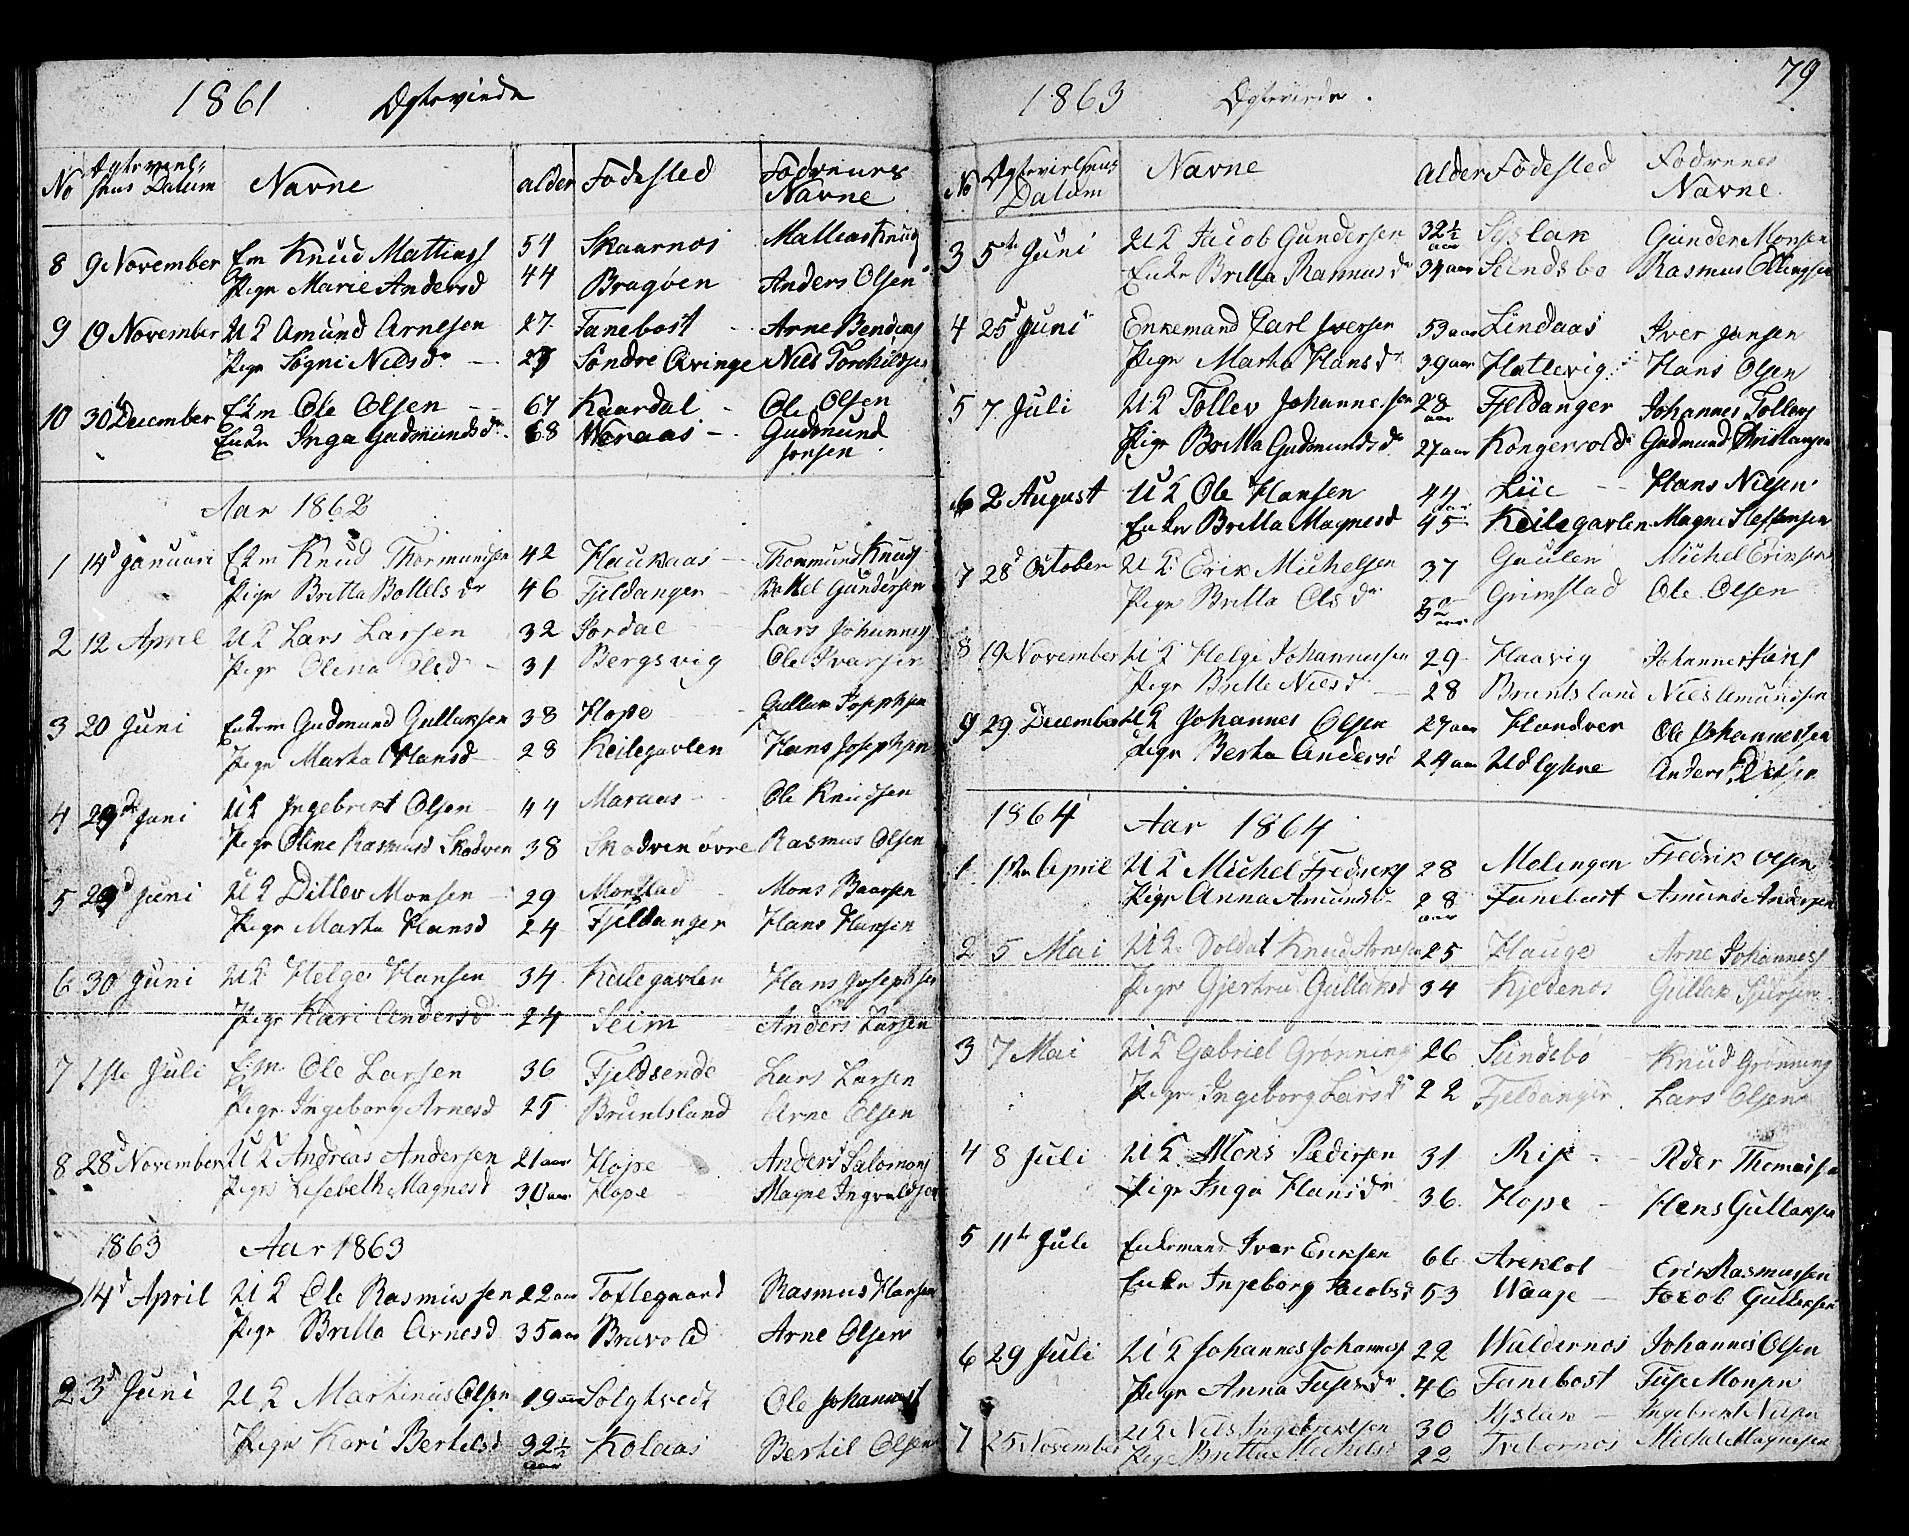 1861 Ægteviede
No Ægteviel-
sens Datum Navne alder Fødested Fædrenes
Navne
8 9 November Em Knud Mattiass 54 Skaarnos Mattias Knuds
Pige Marie Andersd 44 Bragøen Anders Olsen
9 19 November UK Amund Arnesen 27 Fanebost Arne Bendens
Pige Søgni Nielsdr 27 Søndre Qvinge Niels Torchildsen
10 30 December Ekm Ole Olsen 67 Kaardal Ole Olsen
Enke Inga Gudmundsdr 68 Weraas Gudmund
Jonsen
Aar 1862
1 14d Januari Ekm Knud Thormundsen 42 Haukaas Thormund Knuds
Pige Britta Bottelsdr 46 Fjeldanger Bottel Gundersen
2 12 April UK Lars Larsen 32 Jordal Lars Johannes
Pige Olina Olsd 31 Bergsvig Ole Ivarsen
3 20 Juni Enkem Gudmund Gullaksen 38 Hope Gullak Josephsen
Pige Marta Hansd 28 Keilegavlen Hans Josephsen
4 29de Juni UK Ingebrekt Olsen 44 Maraas Ole Knudsen
Pige Oline Rasmusd Skodven 38 Skodven øvre Rasmus Olsen
5 29d Juni UK Ditlev Monsen 29 Monstad Mons Baarsen
Pige Marta Hansd 24 Fjeldanger Hans Hansen
6 30 Juni UK Helge Hansen 34 Keilegavlen Hans Josephsen
Pige Kari Andersd 24 Seim Anders Larsen
7 1ste Juli Ekm Ole Larsen 36 Fjeldsende Lars Larsen
Pige Ingeborg Arnesd 25 Bruntsland Arne Olsen
8 28d November UK Andreas Andersen 21 aar Hope Anders Salomons
Pige Lisebeth Magnesd 30 aar Hope Magne Ingvaldsen
1863 Aar 1863
1 14d April UK Ole Rasmussen 22 aar Toftegaard Rasmus Hansen
Pige Britta Arnesd 35 aar Bruvold Arne Olsen
2 3d Juni UK Martinus Olsen 19 aar Solghvedt Ole Johannes
Pige Kari Bertelsd 32½ aar Kolaas Bertil Olsen
79
1863 Ægteviede.
No Ægtevielsens
Datum Navne alder Fødested Fædrenes
Navne
3 5te Juni UK Jacob Gundersen 32½ aar Syslak Gunder Monsen
Enke Britta Rasmusdr 34 aar Sundsbø Rasmus Ellingsen
4 25d Juni Enkemand Carl Iversen 53 aar Lindaas Iver Jansen
Pige Marta Hansdr 39 aar Hatlevig Hans Olsen
5 7 Juli UK Tollev Johannesen 28 aar Fjeldanger Johannes Tollevs
Pige Britta Gudmundsdr 27 aar Kongsvold Gudmund Christiansen
6 2 August UK Ole Hansen 44 aar Liie Hans Nilsen
Enke Britta Magnesd 45 Keilegavlen Magne Steffensen
7 28d October UK Erik Michelsen 37 Gaulen Michel Eriksen
Pige Britta Olsdr 30 aar Grimstad Ole Olsen
8 19 November UK Helge Johannessen 29 Haavig Johannes Hans
Pige Britte Nielsd 28 Bruntsland Niels Amundsen
9 29 December UK Johannes Olsen 27 aar Handver Ole Johannessen
Pige Berta Andersd 29 aar Udlykne Anders Olsen
1864 Aar 1864
1 12te April UK Michel Fredriks 28 Molingen Fredrik Olsen
Pige Anna Amundsd 28 aar Fanebust Amund Andersen
2 5 Mai UK Soldat Knud Arnesen 25 Hauge Arne Johannes
Pige Gjertru Gullaksd 34 Kjedenos Gullak Sjursen
3 7 Mai UK Gabriel Grønning 26 Sundsbø Knud Grønning
Pige Ingeborg Larsdr 22 Fjeldanger Lars Olsen
4 8 Juli UK Mons Pedersen 31 Risc Peder Thomassen
Pige Inga Hansdr 36 Hope Hans Gullaksen
5 11te Juli Enkemand Iver Eriksen 66 Areklot Erik Rasmussen
Enke Ingeborg Jacobsd 53 Waage Jacob Gullaksen
6 29 Juli UK Johannes Johannes 22 Waldernos Johannes Olsen
Pige Anna Tufsdr 46 Fanebost Tufse Monsen
7 25 November UK Nils Ingebrektsen 30 Syslak Ingebrekt Nilsen
Pige Britta Michelsd 22 Trebornos Michel Magnesen